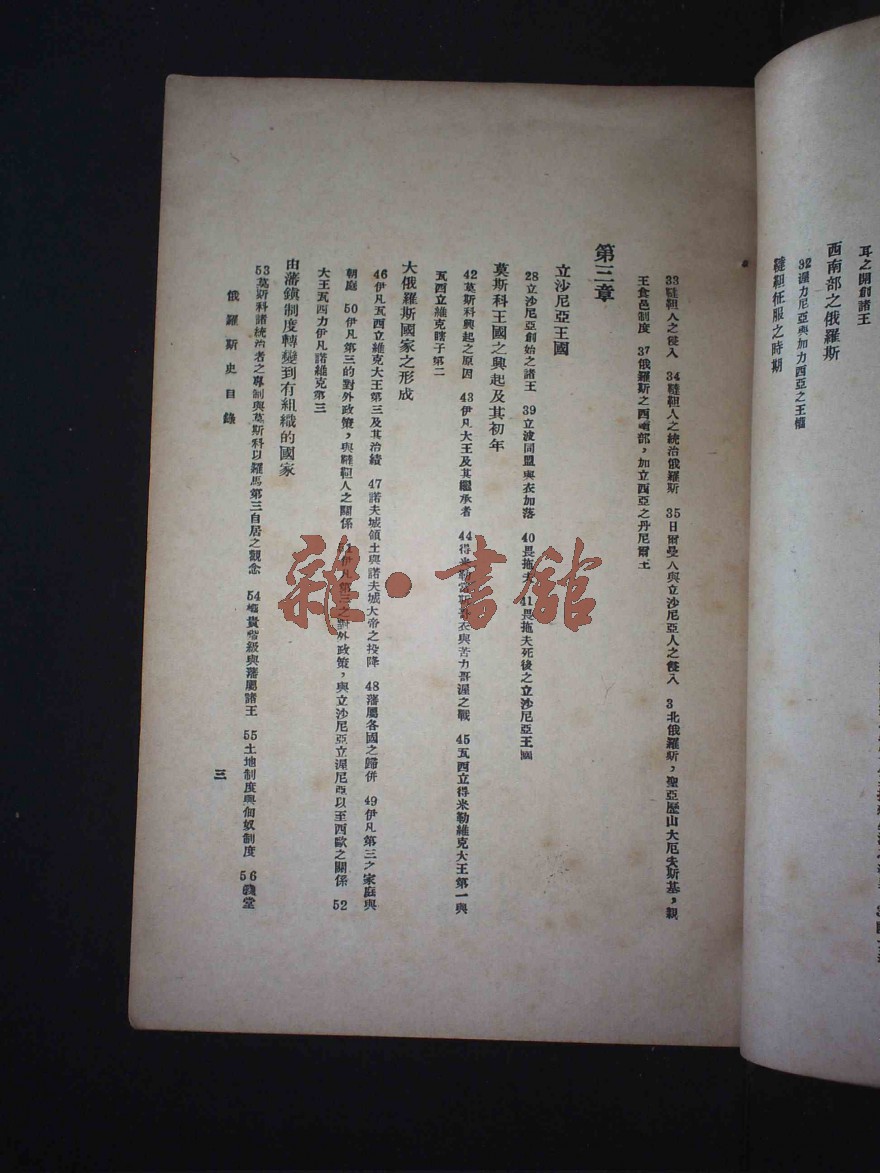 耳之開創諸王
西南部之俄羅斯
32渥力尼亞與加力西亞之王權
韃靼征服之時期
33韃靼人之侵入　34韃靼人之統治俄羅斯　35日爾曼人與立沙尼亞人之侵入　3北俄羅斯，聖亞歷山大厄夫斯基，親
王食邑制度　37俄羅斯之西南部，加立西亞之丹尼爾王
第三章
立沙尼亞王國
28立沙尼亞創始之諸王　39立波同盟與衣加落　40畏拖夫　41畏拖夫死後之立沙尼亞王國
莫斯科王國之興起及其初年
42莫斯科興起之原因　43伊凡大王及其繼承者　44得米勒當斯哥衣與苦力哥渥之戰　45瓦西立得米勒維克大王第一與
瓦西立維克瞎子第二
大俄羅斯國家之形成
46伊凡瓦西立維克大王第三及其治績　47諾夫城領土與諾夫城大帝之投降　48藩屬各國之歸併　49伊凡第三之家庭與
朝庭　50伊凡第三的對外政策，與韃靼人之關係　51伊凡第三之對外政策，與立沙尼亞立渥尼亞以至西歐之關係　52
大王瓦西力伊凡諾維克第三
由藩鎮制度轉變到有組織的國家
53莫斯科諸統治者之專制與莫斯科以羅馬第三自居之觀念　54權貴階級與藩屬諸王　55土地制度與佃奴制度　56
俄羅斯史目錄
三
雜·書館